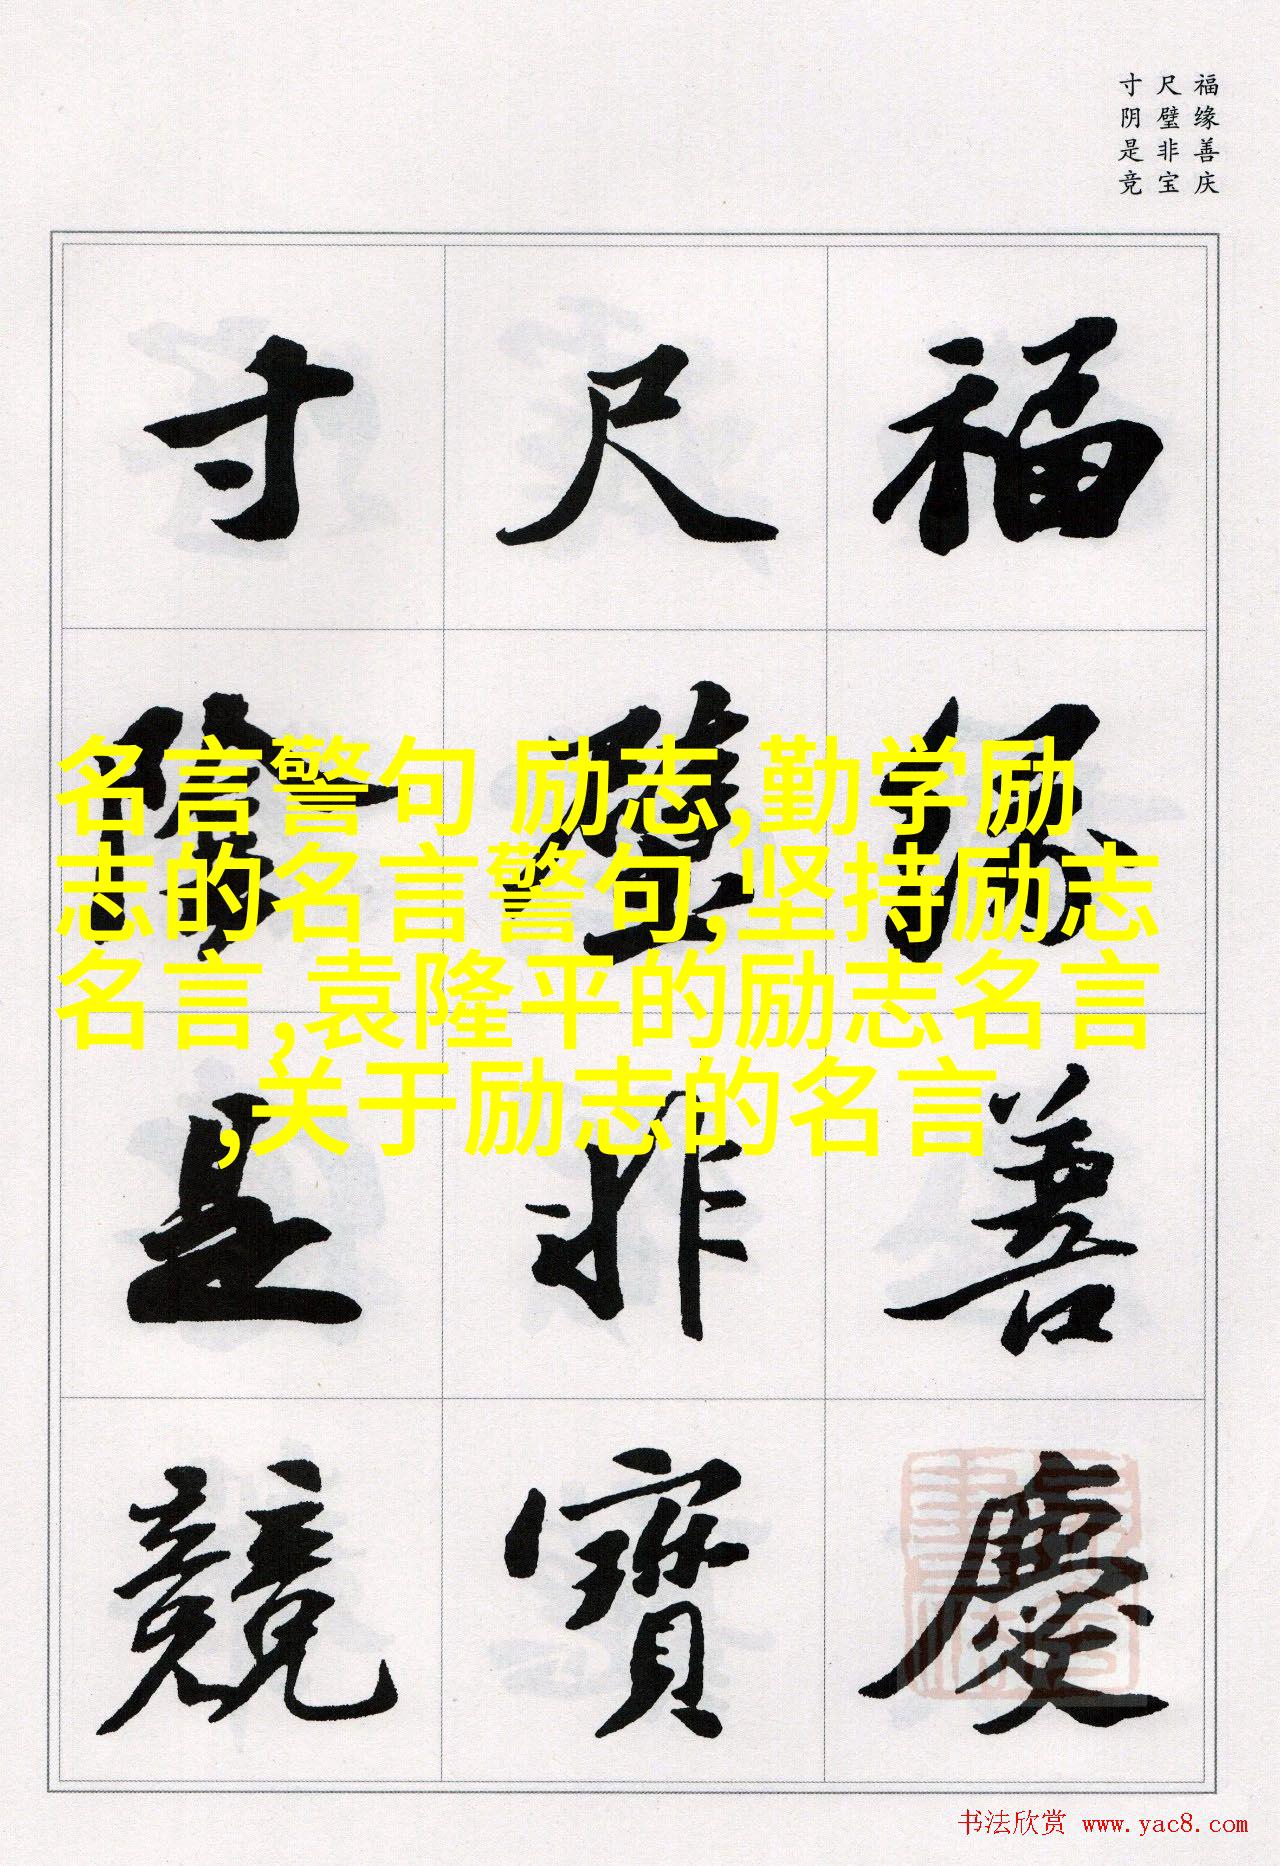 福缘善庆
尺璧非宝
寸阴是竞
福缘善慶
尺璧非寶
寸陰是競
名言警句 励志,勤学励
志的名言警句,坚持励志
名言,袁隆平的励志名言
,关于励志的名言
书法欣赏 www.yac8.com